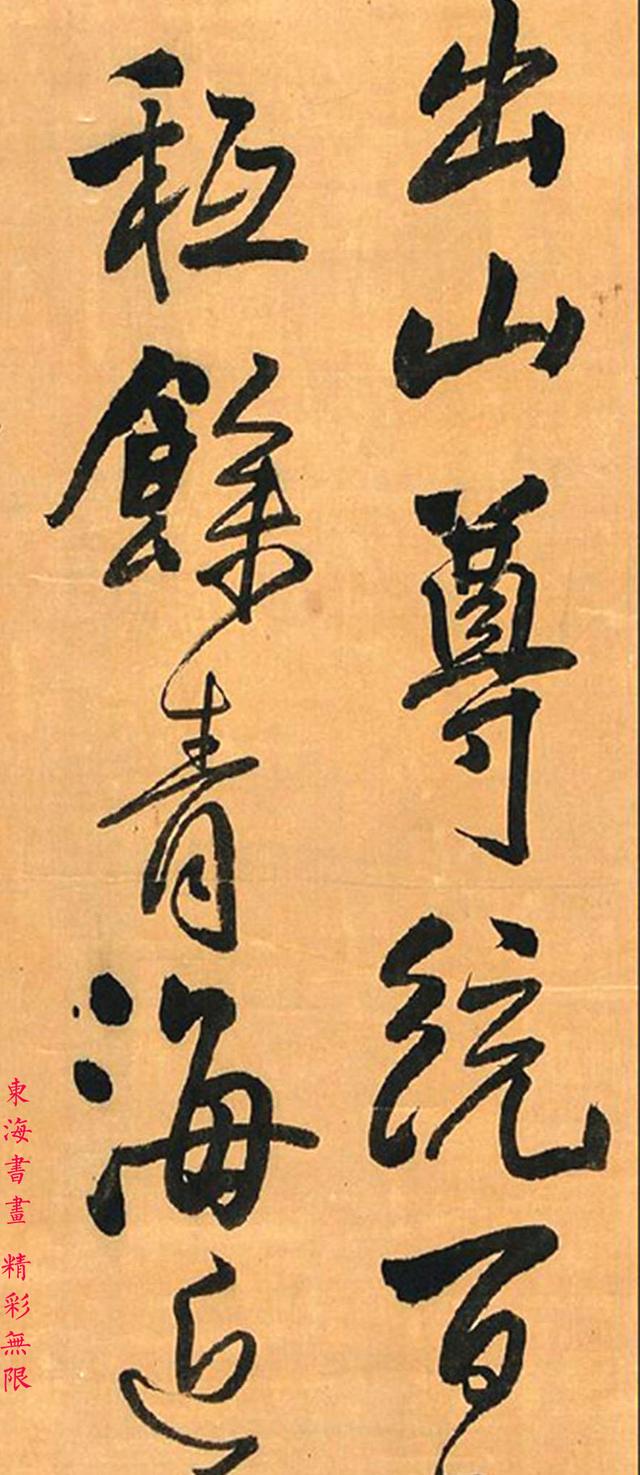 出山尊統百
秪餘青海近
東海書畫 精彩無限